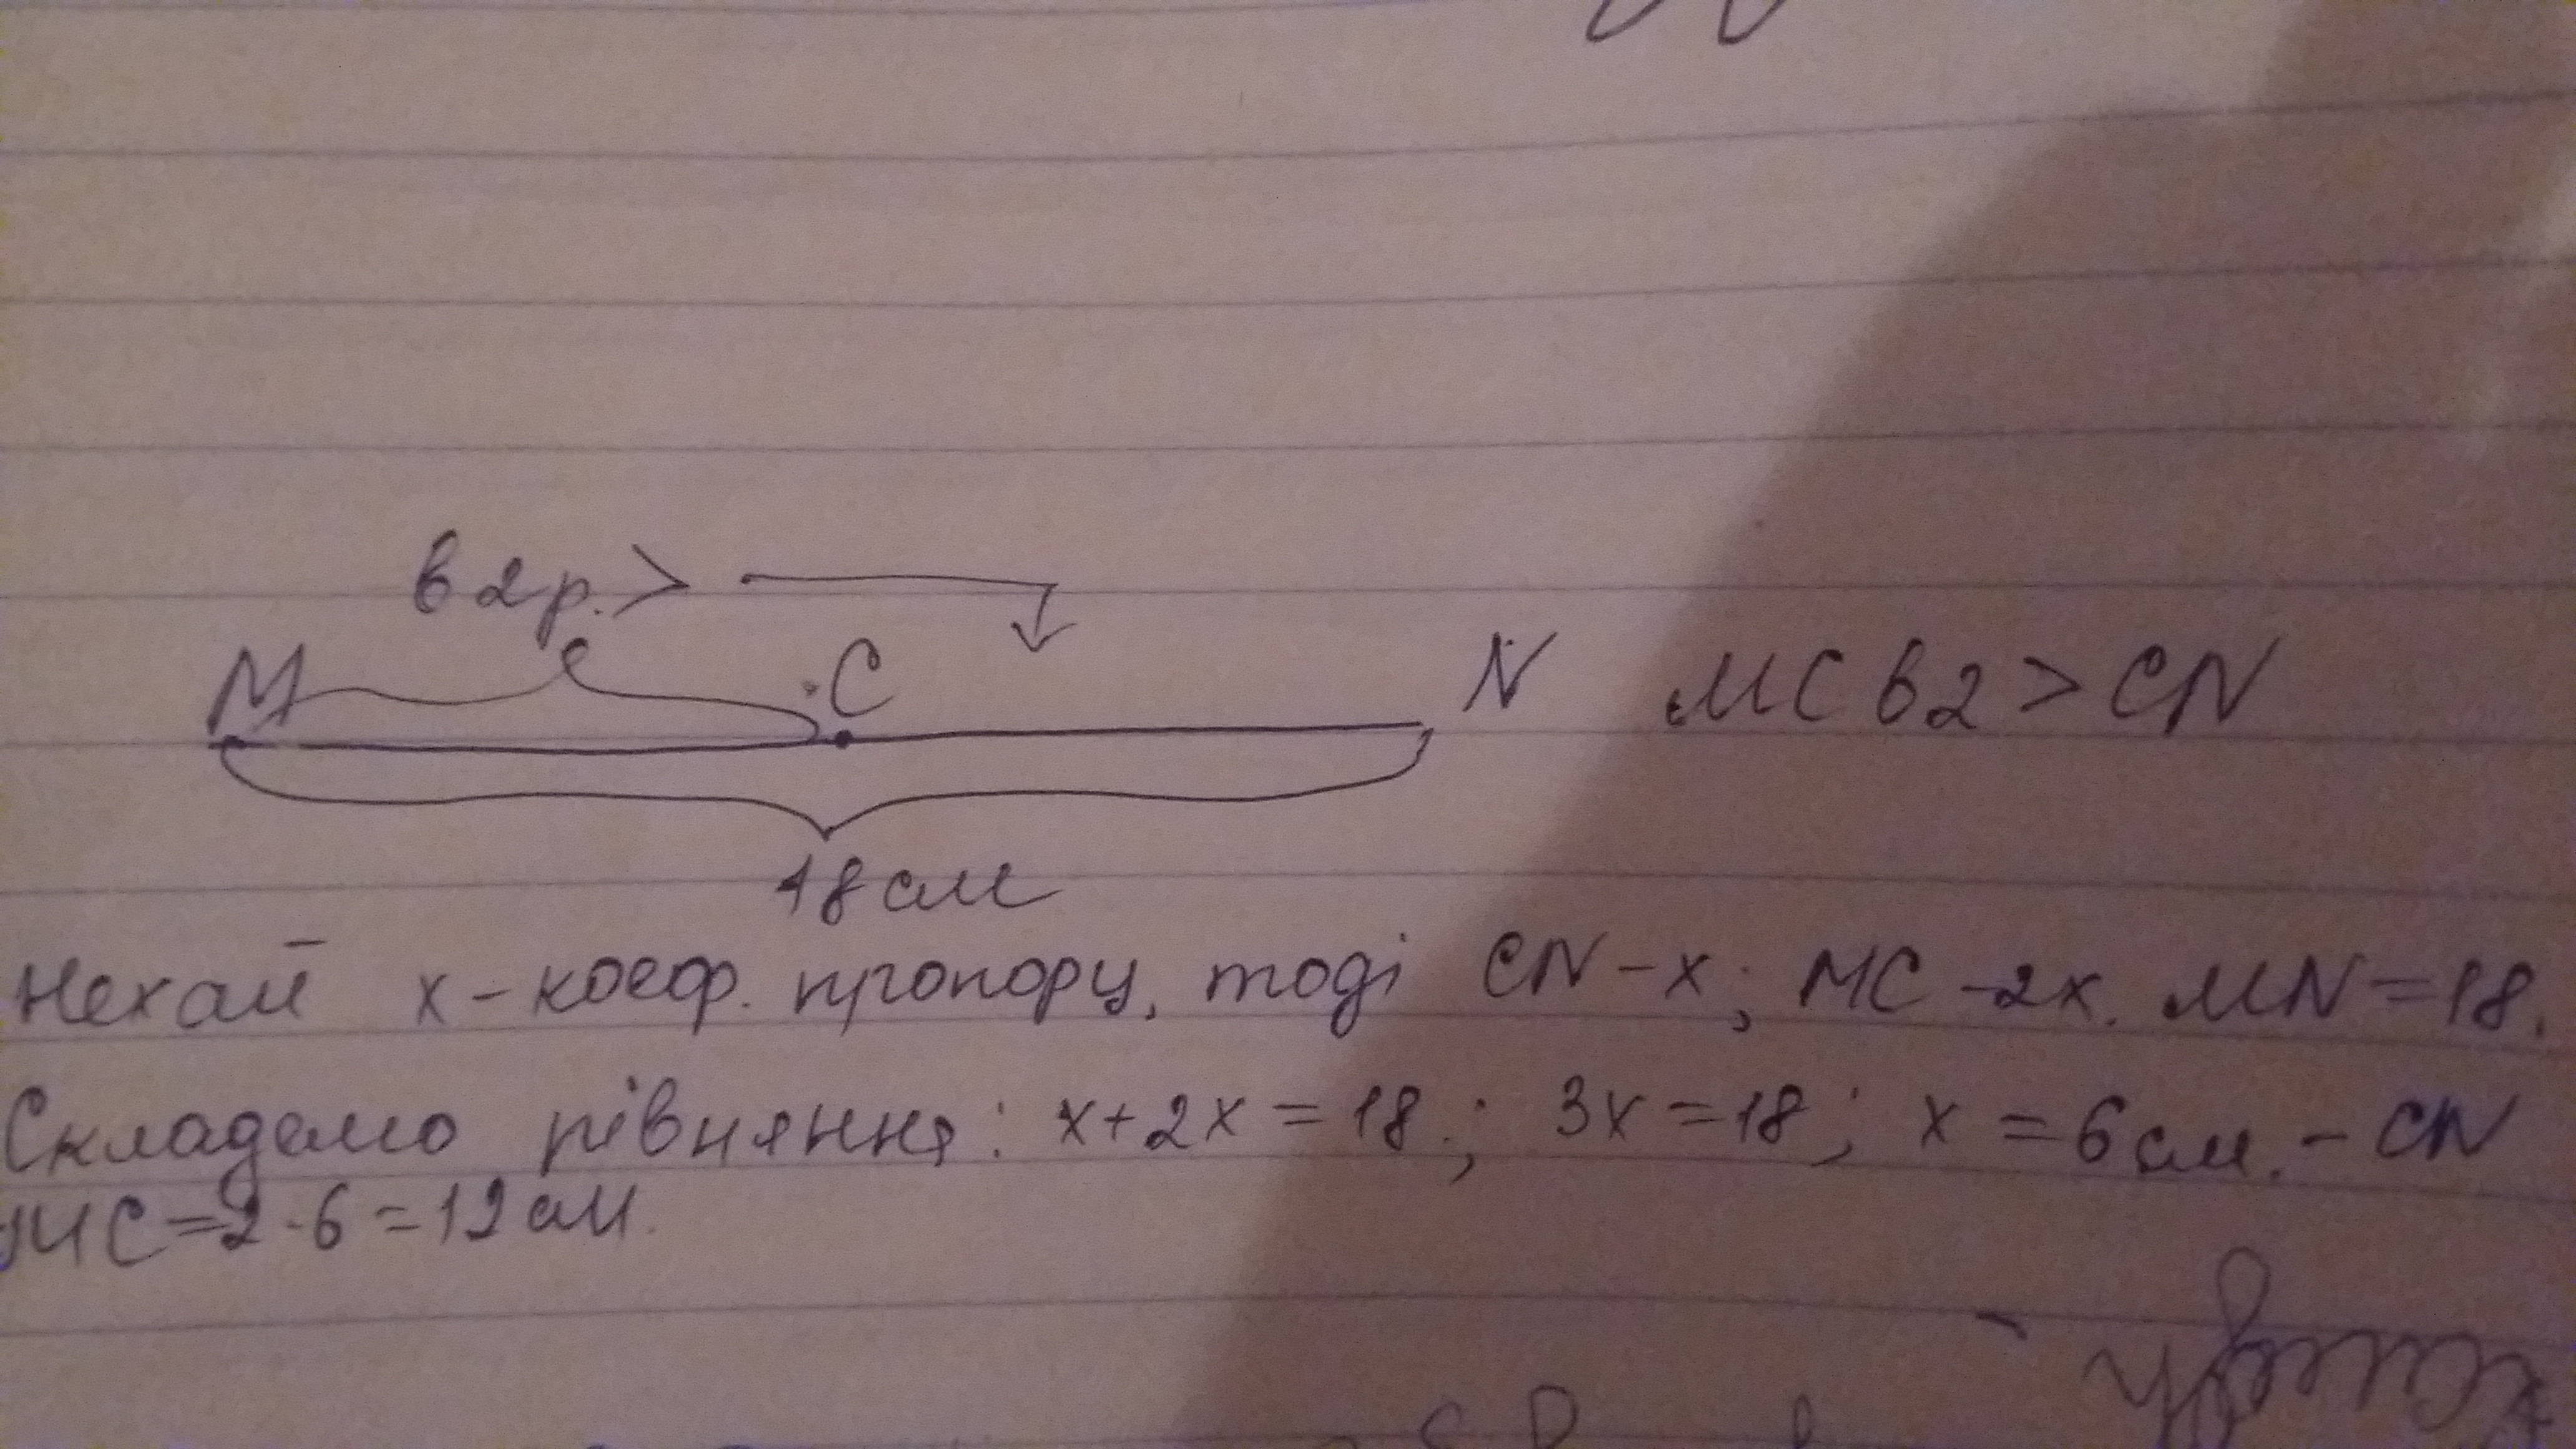 в 2 р. >
M C N MC в 2 > CN
18 см
Нехай x - коеф. пропорц, тоді CN - x; MC - 2x. MN = 18.
Складемо рівняння: x + 2x = 18.; 3x = 18; x = 6 см. - CN
MC = 2 · 6 = 12 см.